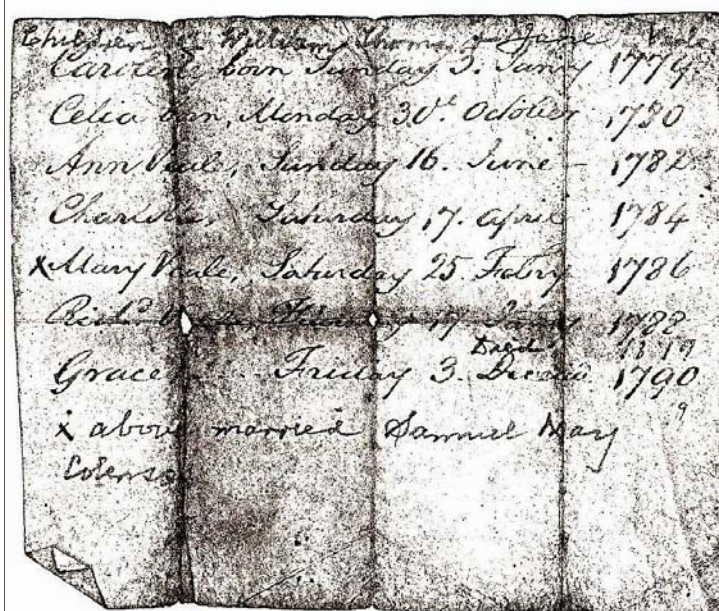 Children of William Thomas & Jane Veale
born Sunday 3. Janry 1779.
Celia born, Monday 30d. October 1780
Ann Veale, Sunday 16. June - 1782
Charlotte, Saturday 17. April 1784
x Mary Veale, Saturday 25. Febry 1786
Richd 17 Janry 1788
Died 1817
Grace ... Friday 3. Decem 1790
9
x above married Samuel May
Colenso